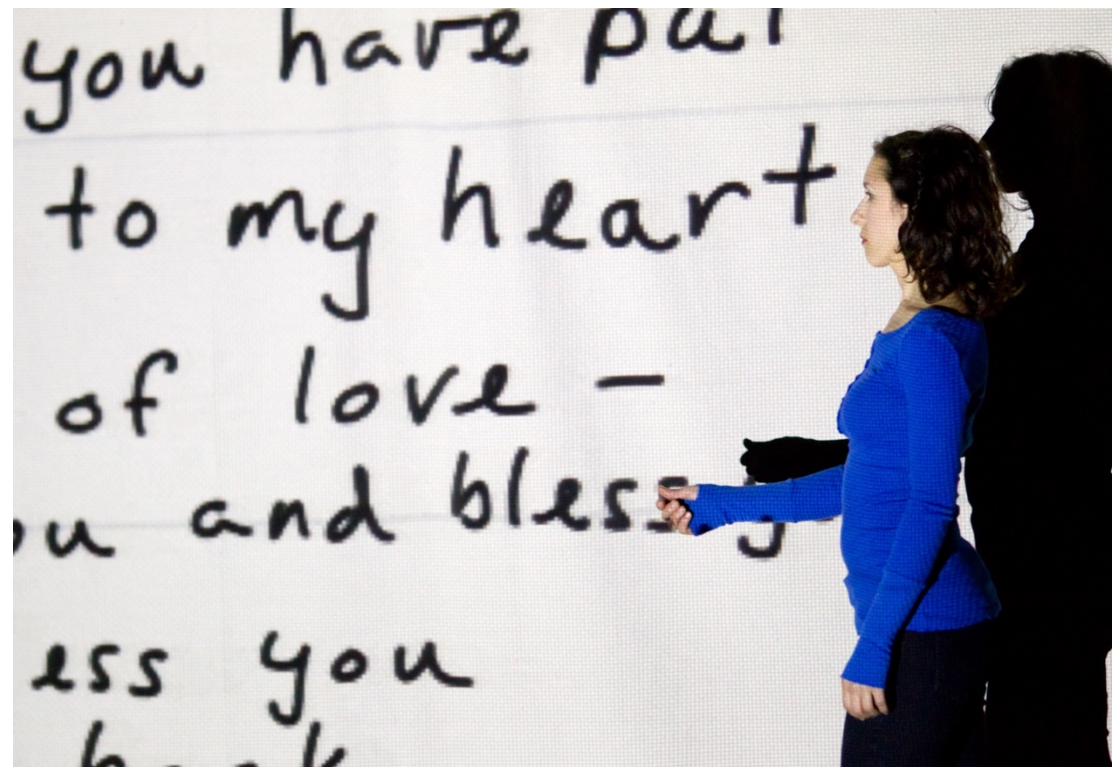 you have
to my heart
of love –
and bless
you